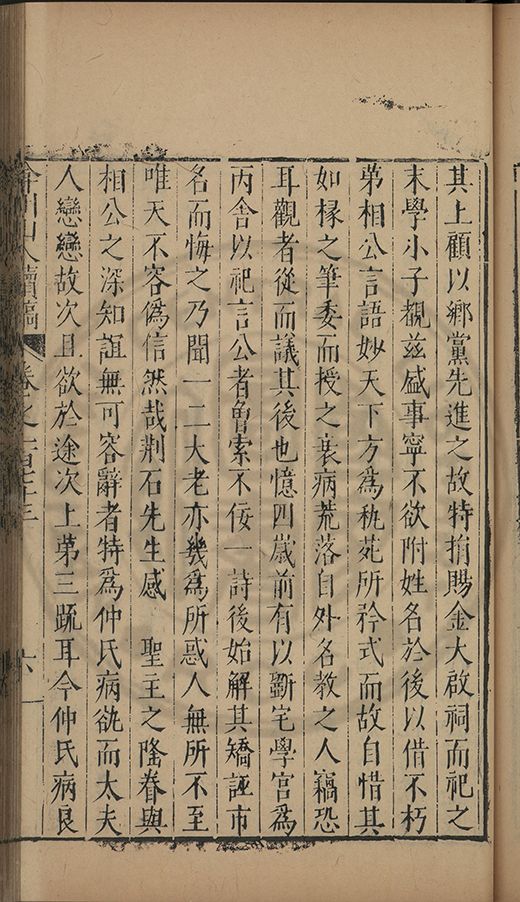 其上顧以鄉黨先進之故特捐賜金大啟祠而祀之
末學小子覩茲盛事寧不欲附姓名於後以借不朽
苐相公言語妙天下方為秇苑所矜式而故自惜其
如椽之筆委而授之衰病荒落自外名教之人竊恐
耳觀者從而議其後也憶四歲前有以斷宅學宮為
丙舍以祀言公者魯索不佞一詩後始解其矯誣市
名而悔之乃聞一二大老亦幾為所惑人無所不至
唯天不容偽信然哉荆石先生感　聖主之隆眷與
相公之深知誼無可容辭者特為仲氏病欲而太夫
人戀戀故次且欲於途次上苐三䟽耳今仲氏病良
弇州山人續稿 卷之一百七十三 六